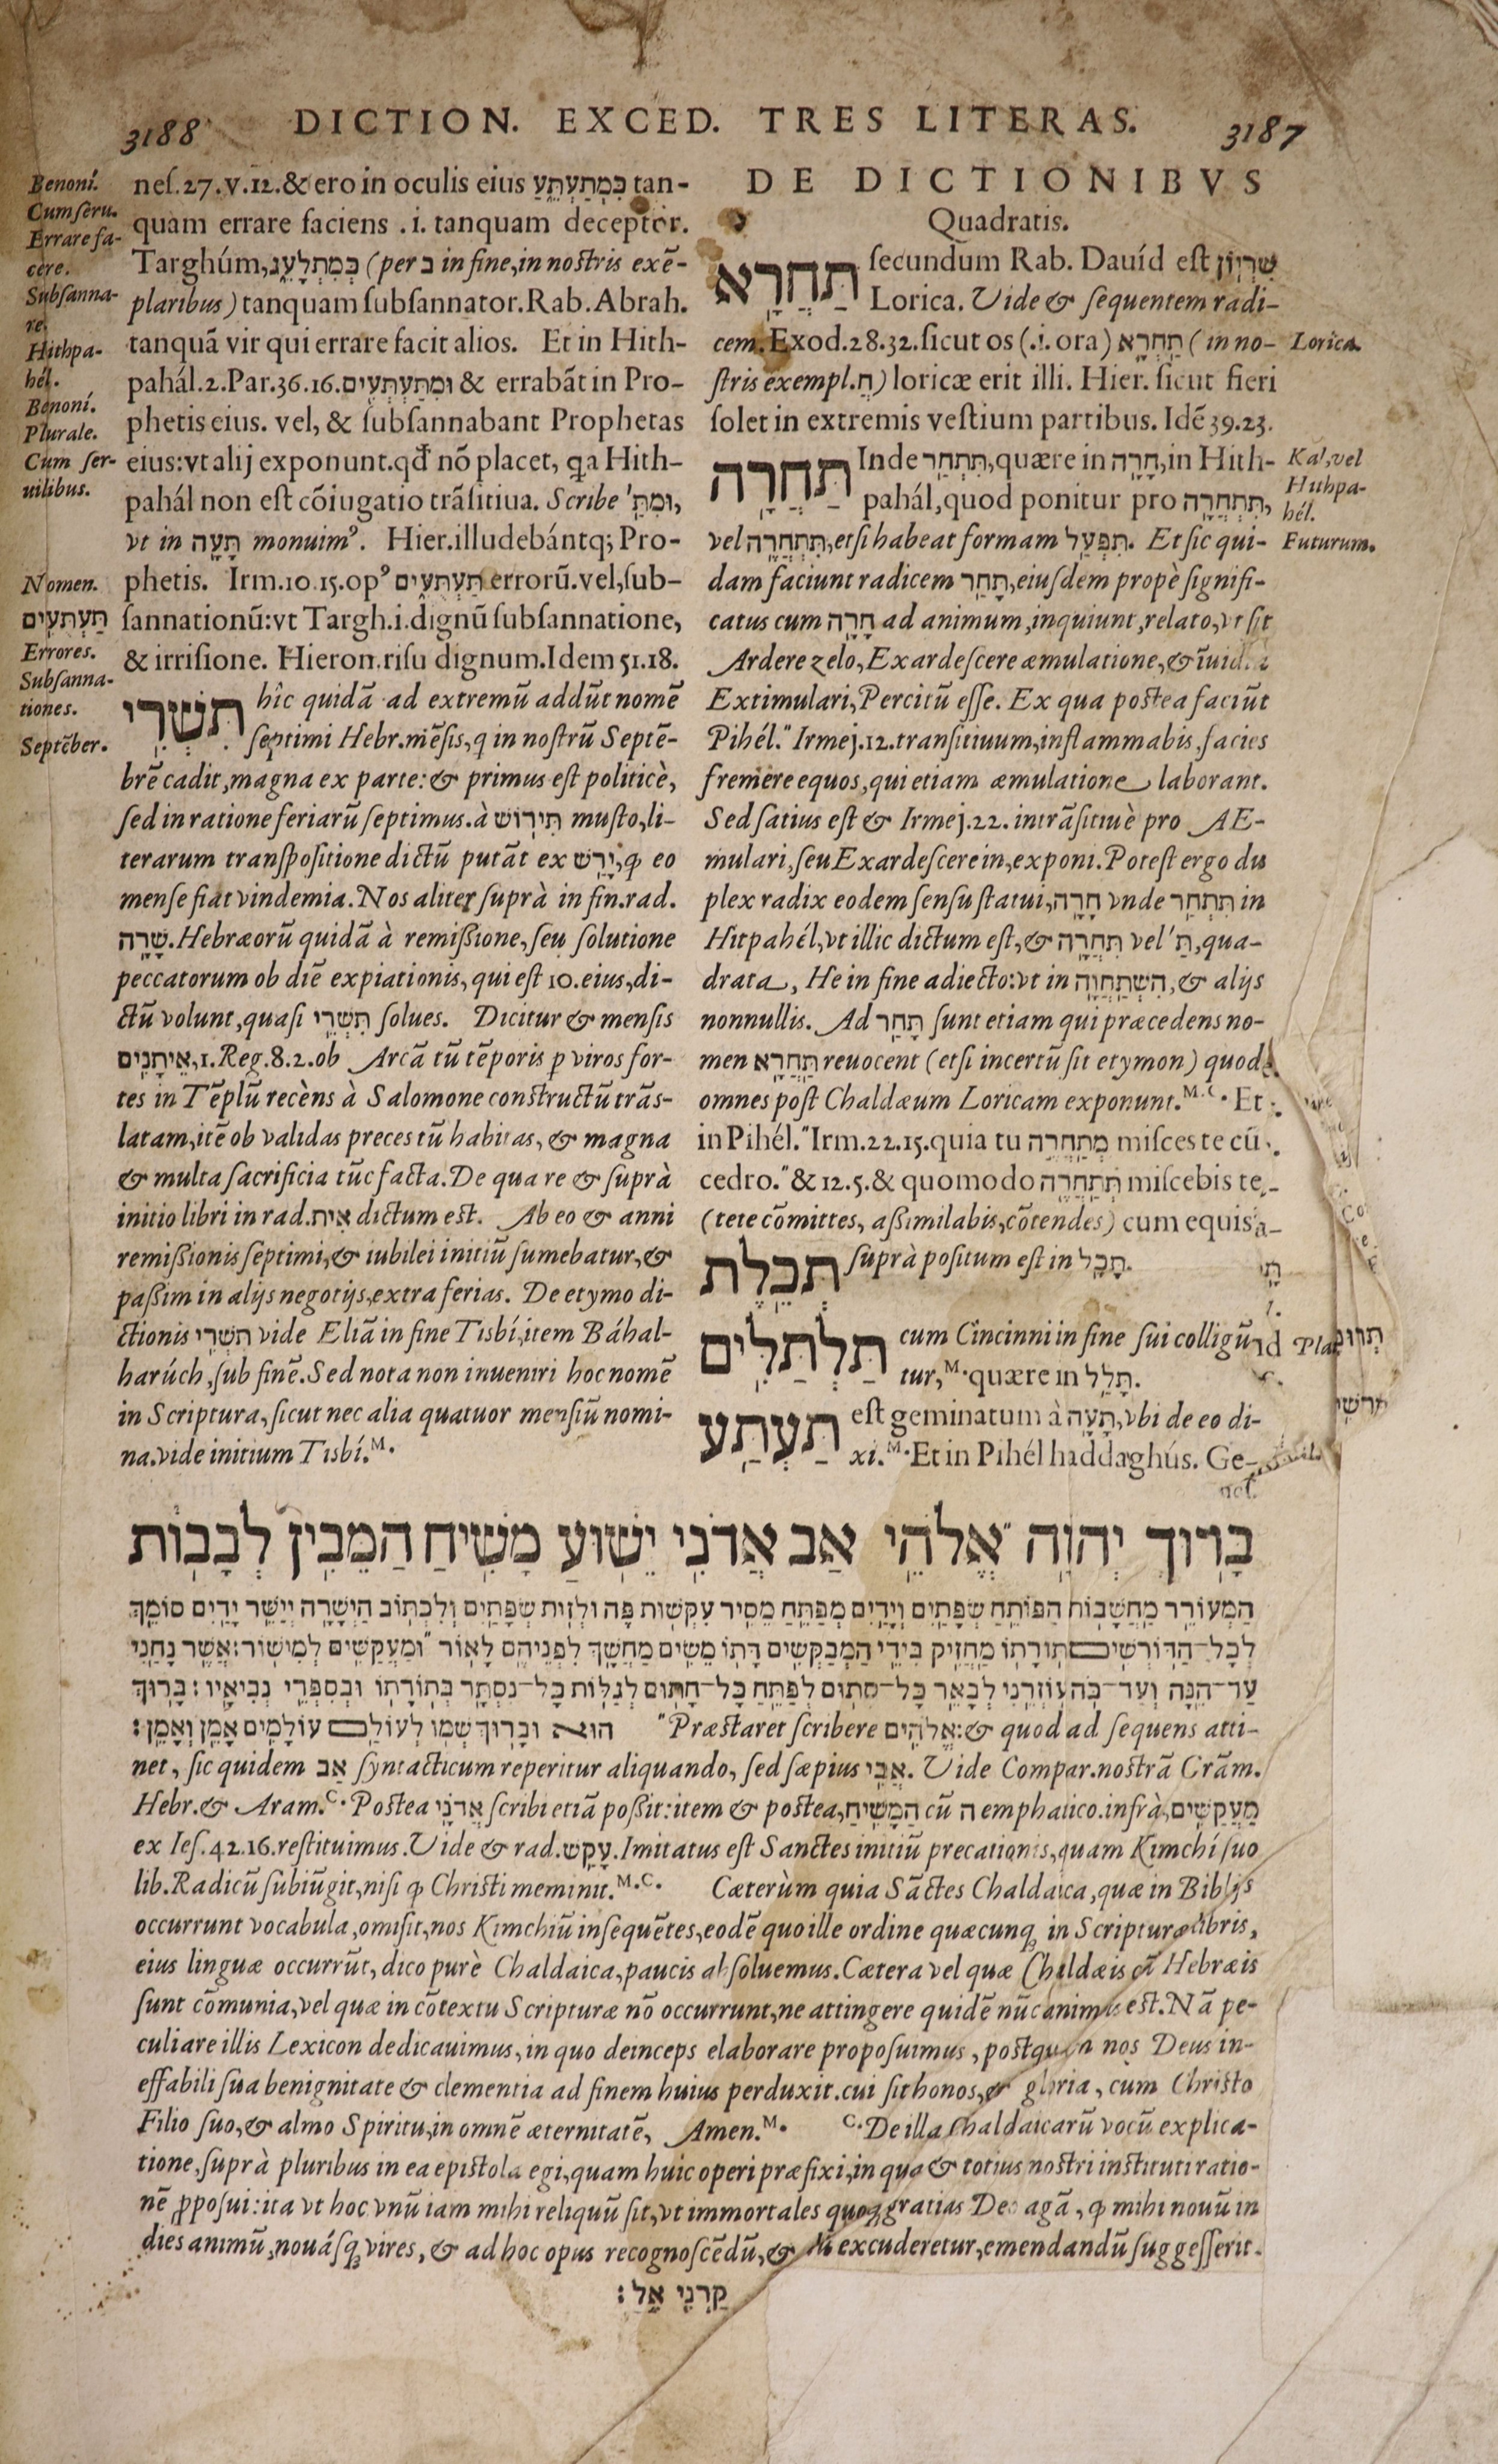 3188 DICTION. EXCED. TRES LITERAS. 3187
DE DICTIONIBVS
Quadratis.
תַּחֲרָא secundum Rab. Dauíd est שִׁרְיוֹן
Lorica. Uide & sequentem radi-
cem. Exod.28.32.sicut os (.i. ora) תַחְרָא (in no-
stris exempl.חֲ) loricæ erit illi. Hier. sicut fieri
solet in extremis vestium partibus. Idē 39.23.
תַּחֲרָה Inde תִּתְחַר, quære in חָרָה, in Hith-
pahál, quod ponitur pro תִּתְחֲרָה,
vel תִּתְחֲרֶה, etsi habeat formam תִּפְעַל. Et sic qui-
dam faciunt radicem תָּחַר, eiusdem propè signifi-
catus cum חָרָה ad animum, inquiunt, relato, vt sit
Ardere zelo, Exardescere æmulatione, &
Extimulari, Percitū esse. Ex qua postea faciūt
Pihél." Irmej.12. transitiuum, inflammabis, facies
fremere equos, qui etiam æmulatione laborant.
Sed satius est & Irmej.22. intrāsitiuè pro AE-
mulari, seu Exardescere in, exponi. Potest ergo du
plex radix eodem sensu statui, חָרָה vnde תִּתְחַר in
Hitpahél, vt illic dictum est, & תִּחֲרָה vel 'תַּ, qua-
drata, He in fine adiecto: vt in הִשְׁתַּחֲוָה, & alijs
nonnullis. Ad תָּחַר sunt etiam qui præcedens no-
men תַּחֲרָא reuocent (etsi incertū sit etymon) quod
omnes post Chaldæum Loricam exponunt.M.C. Et
in Pihél."Irm.22.15. quia tu מְתַחֲרֶה misces te cū
cedro."& 12.5. & quomodo תְּתַחֲרֶה miscebis te
(te te cōmittes, assimilabis, cōtendes) cum equis
תְּכֵלֶת suprà positum est in תָּכַל.
תַּלְתַּלִּים cum Cincinni in fine sui colligū
tur,M. quære in תָּלַל.
תַּעְתַּע est geminatum à תָּעָה, vbi de eo di-
xi.M. Et in Pihél haddaghús. Ge-
nes.
Lorica.
Kal, vel
Hithpa-
hél.
Futurum.
nes.27.v.12.& ero in oculis eius כִּמְתַעְתֵּעַ tan-
quam errare faciens .i. tanquam deceptor.
Targhúm, כְּמִתְלָעֵג (per ב in fine, in nostris exē-
plaribus) tanquam subsannator. Rab. Abrah.
tanquā vir qui errare facit alios. Et in Hith-
pahál.2.Par.36.16. וּמִתַּעְתְּעִים & errabāt in Pro-
phetis eius. vel, & subsannabant Prophetas
eius: vt alij exponunt. qđ nō placet, ꝗa Hith-
pahál non est cōiugatio trāsitiua. Scribe 'וּמִתַּ,
vt in תָּעָה monuimꝰ. Hier. illudebántq; Pro-
phetis. Irm.10.15. opꝰ תַּעְתֻּעִים errorū. vel, sub-
sannationū: vt Targh.i.dignū subsannatione,
& irrisione. Hieron. risu dignum. Idem 51.18.
תִּשְׁרִי hîc quidā ad extremū addūt nomē
septimi Hebr. mēsis, q in nostrū Septē-
brē cadit, magna ex parte: & primus est politicè,
sed in ratione feriarū septimus. à תִּירוֹשׁ musto, li-
terarum transpositione dictū putāt ex יָרַשׁ, ꝙ eo
mense fiat vindemia. Nos aliter suprà in fin. rad.
שָׁרָה. Hebræorū quidā à remissione, seu solutione
peccatorum ob diē expiationis, qui est 10. eius, di-
ctū volunt, quasi תִּשְׁרֵי solues. Dicitur & mensis
אֵיתָנִים, 1. Reg.8.2. ob Arcā tū tēporis p viros for-
tes in Tēplū recèns à Salomone constructū trās-
latam, itē ob validas preces tū habitas, & magna
& multa sacrificia tūc facta. De qua re & suprà
initio libri in rad. אית dictum est. Ab eo & anni
remissionis septimi, & iubilei initiū sumebatur, &
passim in alijs negotijs, extra ferias. De etymo di-
ctionis תִּשְׁרֵי vide Eliā in fine Tisbí, item Báhal-
harúch, sub finē. Sed nota non inueniri hoc nomē
in Scriptura, sicut nec alia quatuor mensiū nomi-
na. vide initium Tisbí.M.
Benoní.
Cum seru.
Errare fa-
cere.
Subsanna-
re.
Hithpa-
hél.
Benoní.
Plurale.
Cum ser-
uilibus.
Nomen.
תַּעְתֻּעִים
Errores.
Subsanna-
tiones.
Septēber.
בָּרוּךְ יְהוָה "אֱלֹהֵי אַב אֲדֹנִי יֵשׁוּעַ מָשִׁיחַ הַמֵּבִין לְבָבוֹת
הַמְעוֹרֵר מַחֲשָׁבוֹת הַפּוֹתֵחַ שְׂפָתַיִם וְיָדַיִם מְפַתֵּחַ מֵסִיר עִקְּשׁוּת פֶּה וּלְזוּת שְׂפָתַיִם וְלִכְתּוֹב הַיְשָׁרָה יְיַשֵּׁר יָדַיִם סוֹמֵךְ
לְכָל־הַדּוֹרְשִׁים תּוֹרָתוֹ מַחֲזִיק בִּידֵי הַמְבַקְשִׁים דָּתוֹ מֵשִׂים מַחְשָׁךְ לִפְנֵיהֶם לָאוֹר "וּמַעֲקַשִּׁים לְמִישׁוֹר: אֲשֶׁר נָחַנִי
עַד־הֵנָּה וְעַד־כֹּה עֲזָרַנִי לְבָאֵר כָּל־סָתוּם לְפַתֵּחַ כָּל־חָתוּם לְגַלּוֹת כָּל־נִסְתָּר בְּתוֹרָתוֹ וּבְסִפְרֵי נְבִיאָיו: בָּרוּךְ
הוּא וּבָרוּךְ שְׁמוֹ לְעוֹלָם עוֹלָמִים אָמֵן וְאָמֵן: "Præstaret scribere אֱלֹהִים: & quod ad sequens atti-
net, sic quidem אַב syntacticum reperitur aliquando, sed sæpius אֲבִי. Uide Compar. nostrā Grām.
Hebr. & Aram.C. Postea אֲדֹנָי scribi etiā possit: item & postea, הַמָּשִׁיחַ cū ה emphatico. infrà, מַעֲקַשִּׁים
ex Ies.42.16. restituimus. Uide & rad. עָקַשׁ. Imitatus est Sanctes initiū precationis, quam Kimchí suo
lib. Radicū subiūgit, nisi ꝙ Christi meminit.M.C. Cæterùm quia Sāctes Chaldaica, quæ in Biblijs
occurrunt vocabula, omisit, nos Kimchiū insequētes, eodē quo ille ordine quæcunq; in Scripturæ libris,
eius linguæ occurrūt, dico purè Chaldaica, paucis absoluemus. Cætera vel quæ Chaldæis cū Hebræis
sunt cōmunia, vel quæ in cōtextu Scripturæ nō occurrunt, ne attingere quidē nūc animus est. Nā pe-
culiare illis Lexicon dedicauimus, in quo deinceps elaborare proposuimus, postquam nos Deus in-
effabili sua benignitate & clementia ad finem huius perduxit. cui sit honos, & gloria, cum Christo
Filio suo, & almo Spiritu, in omnē æternitatē, Amen.M. C. De illa Chaldaicarū vocū explica-
tione, suprà pluribus in ea epistola egi, quam huic operi præfixi, in qua & totius nostri instituti ratio-
nē ꝓposui: ita vt hoc vnū iam mihi reliquū sit, vt immortales quoq; gratias Deo agā, ꝙ mihi nouū in
dies animū, nouásq; vires, & ad hoc opus recognoscēdū, & excuderetur, emendandū suggesserit.
קַרְנֵי אֵל: